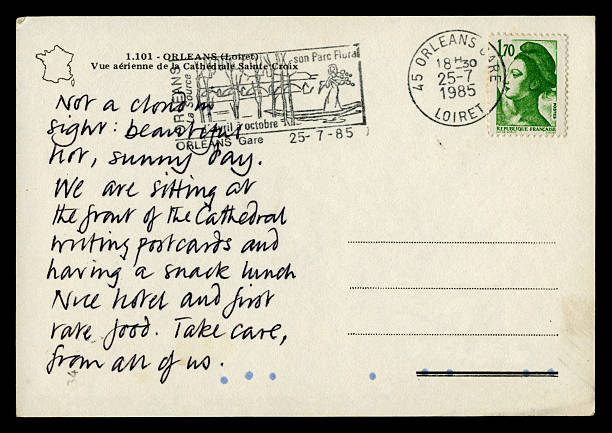 1.101 - ORLEANS (Loiret)
Vue aérienne de la Cathédrale Sainte Croix
ORLEANS
la Source
son Parc Floral
avril à octobre
ORLEANS Gare 25-7-85
45 ORLEANS GARE
18H30
25-7
1985
LOIRET
1,70
POSTES
REPUBLIQUE FRANÇAISE
Not a cloud in
sight: beautiful
hot, sunny day.
We are sitting at
the front of the Cathedral
writing postcards and
having a snack lunch
Nice hotel and first
rate food. Take care,
from all of us.